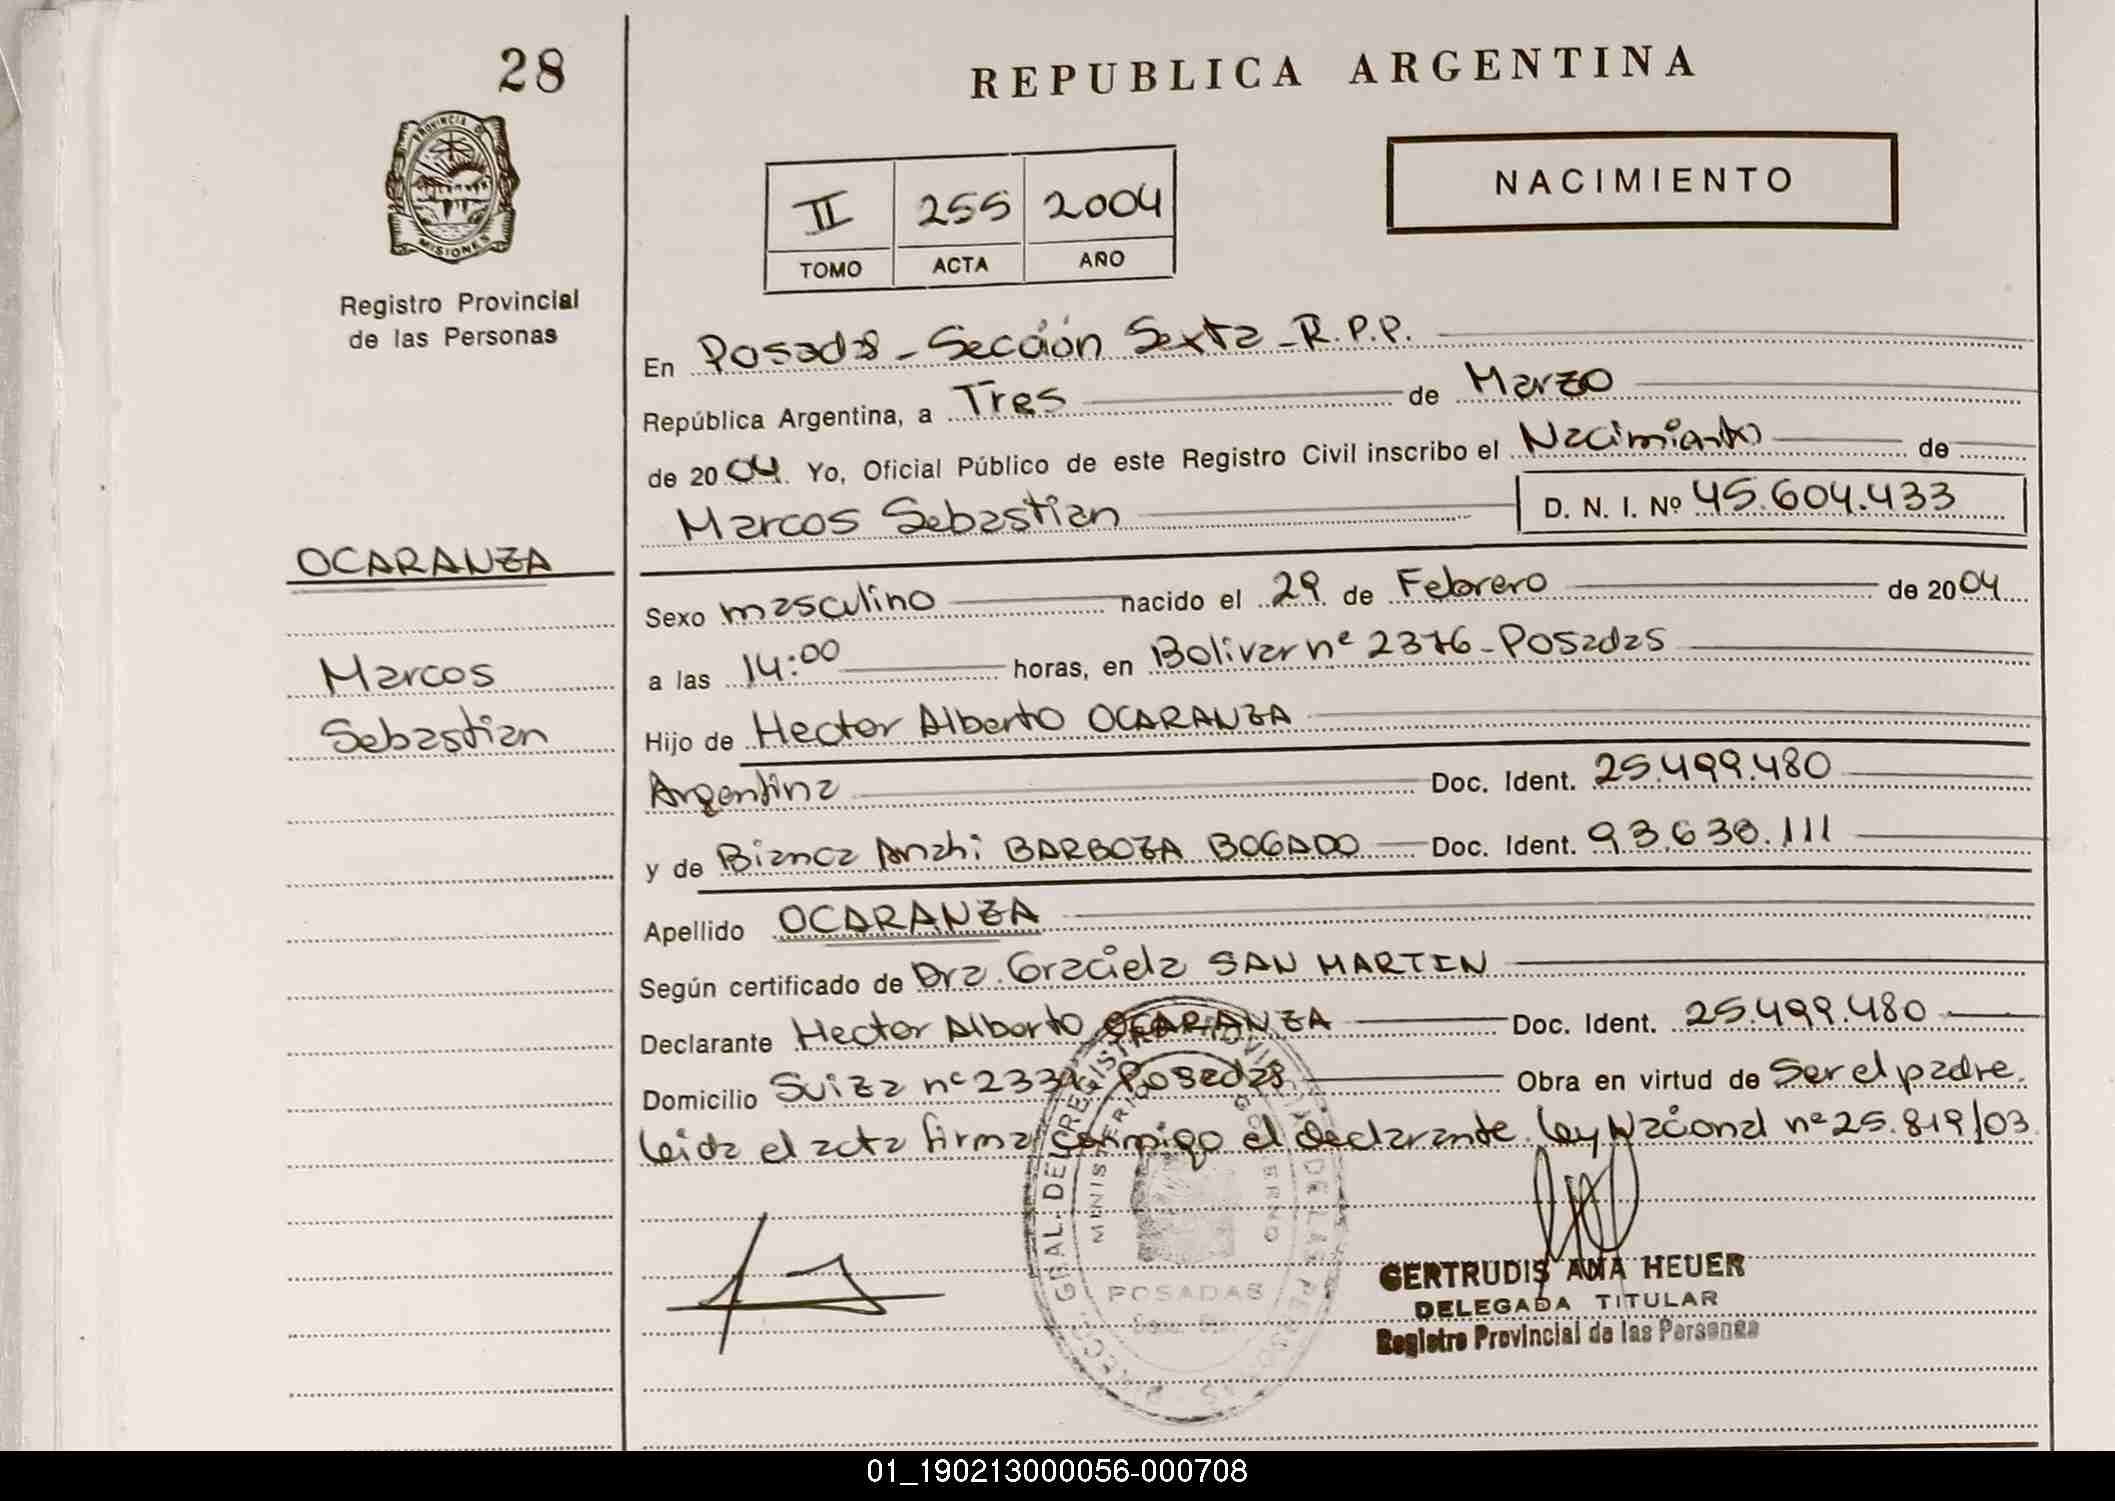 28
REPUBLICA ARGENTINA
PROVINCIA DE
MISIONES
Registro Provincial
de las Personas
NACIMIENTO
II 255 2004
TOMO ACTA AÑO
En Posadas - Sección Sexta - R.P.P.
República Argentina, a Tres de Marzo
de 2004. Yo, Oficial Público de este Registro Civil inscribo el Nacimiento de
Marcos Sebastian D. N. I. Nº 45.604.433
OCARANZA
Marcos
Sebastian
Sexo masculino nacido el 29 de Febrero de 2004
a las 14:00 horas, en Bolivar nº 2376 - Posadas
Hijo de Hector Alberto OCARANZA
Argentina Doc. Ident. 25.499.480
y de Bianca Anahi BARBOZA BOGADO Doc. Ident. 93.638.111
Apellido OCARANZA
Según certificado de Dra. Graciela SAN MARTIN
Declarante Hector Alberto OCARANZA Doc. Ident. 25.499.480
Domicilio Suiza nº Posadas Obra en virtud de Ser el padre.
Leida el acta firma conmigo el declarante. Ley Nacional nº 25.819/03
GRAL. DEL REGISTRO PROVINCIAL DE LAS PERSONAS
MINISTERIO GOBIERNO
POSADAS
GERTRUDIS ANA HEUER
DELEGADA TITULAR
Registro Provincial de las Personas
01_190213000056-000708